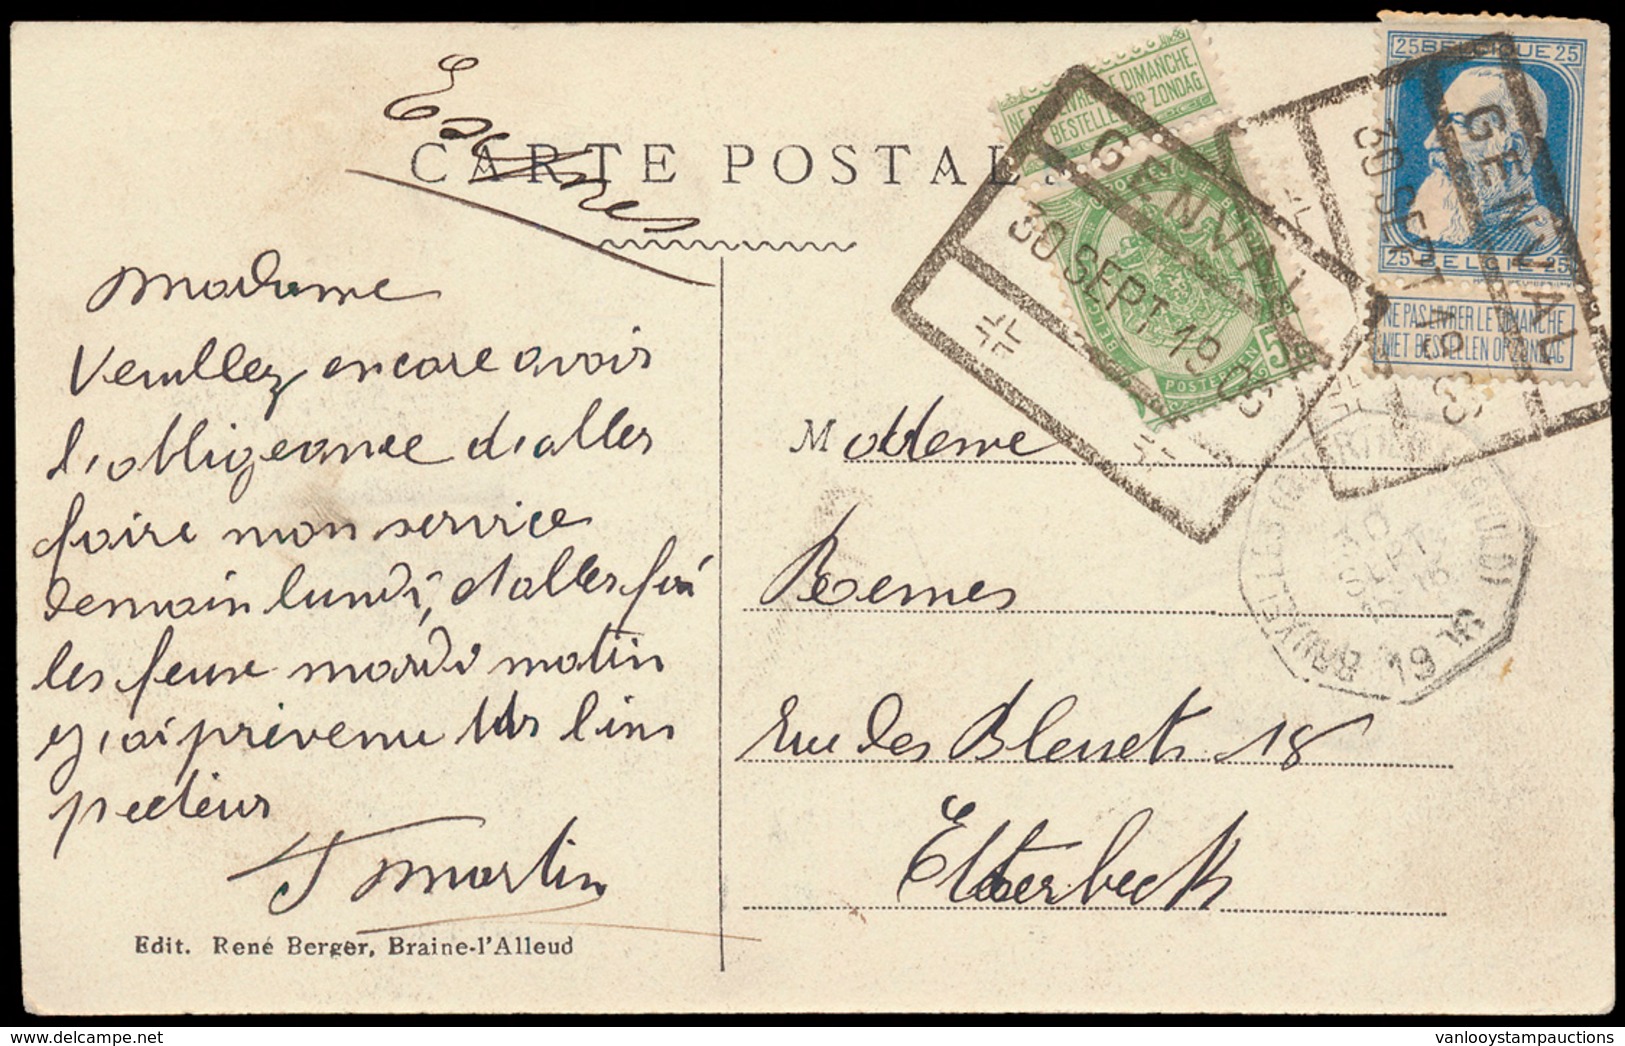 Exprès
CARTE POSTALE
Madame
Veuillez encore avoir
l'obligeance d'aller
faire mon service
demain lundi, et aller
les feux mardi matin
j'ai prévenu l'ins
pecteur
J Martin
Edit. René Berger, Braine-l'Alleud
NE PAS LIVRER LE DIMANCHE.
NIET BESTELLEN OP ZONDAG
POSTES
BELGIQUE
POSTERIJEN
5
GENVAL
30 SEPT 1906
25 BELGIQUE 25
25 BELGIË 25
NE PAS LIVRER LE DIMANCHE
NIET BESTELLEN OP ZONDAG
GENVAL
30 SEPT 1906
BRUXELLES (Q. LÉOPOLD)
30
SEPT
19 06
Madame
Rue des Bleuets 18
Etterbeek
vanlooystampauctions